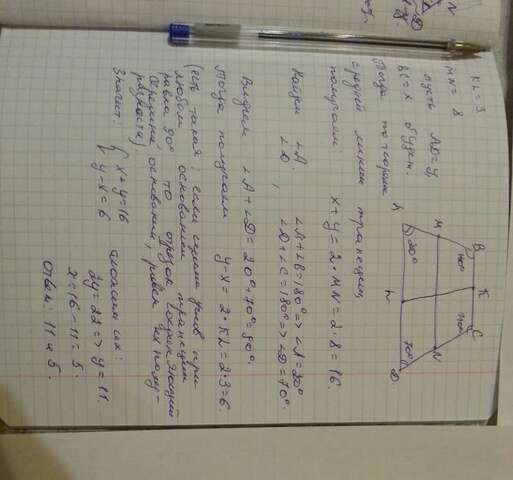 KL = 3
MN = 8
пусть AD = y,
BC = x будет.
Тогда по теореме
средней линии трапеции
получаем x + y = 2 · MN = 2 · 8 = 16.
Найдем ∠A, ∠A + ∠B = 180° => ∠A = 20°
∠D. ∠D + ∠C = 180° => ∠D = 70°.
Видим ∠A + ∠D = 20° + 70° = 90°.
Тогда получаем y - x = 2 · KL = 2 · 3 = 6
(есть такая: если сумма углов при
любом основании трапеции
равна 90° то отрезок соединяющий
середины оснований, равен их полу-
разности)
Значит: { x + y = 16 сложим их:
y - x = 6 2y = 22 => y = 11.
x = 16 - 11 = 5.
Ответ: 11 и 5.
B
K
C
M
N
A
20°
L
70°
D